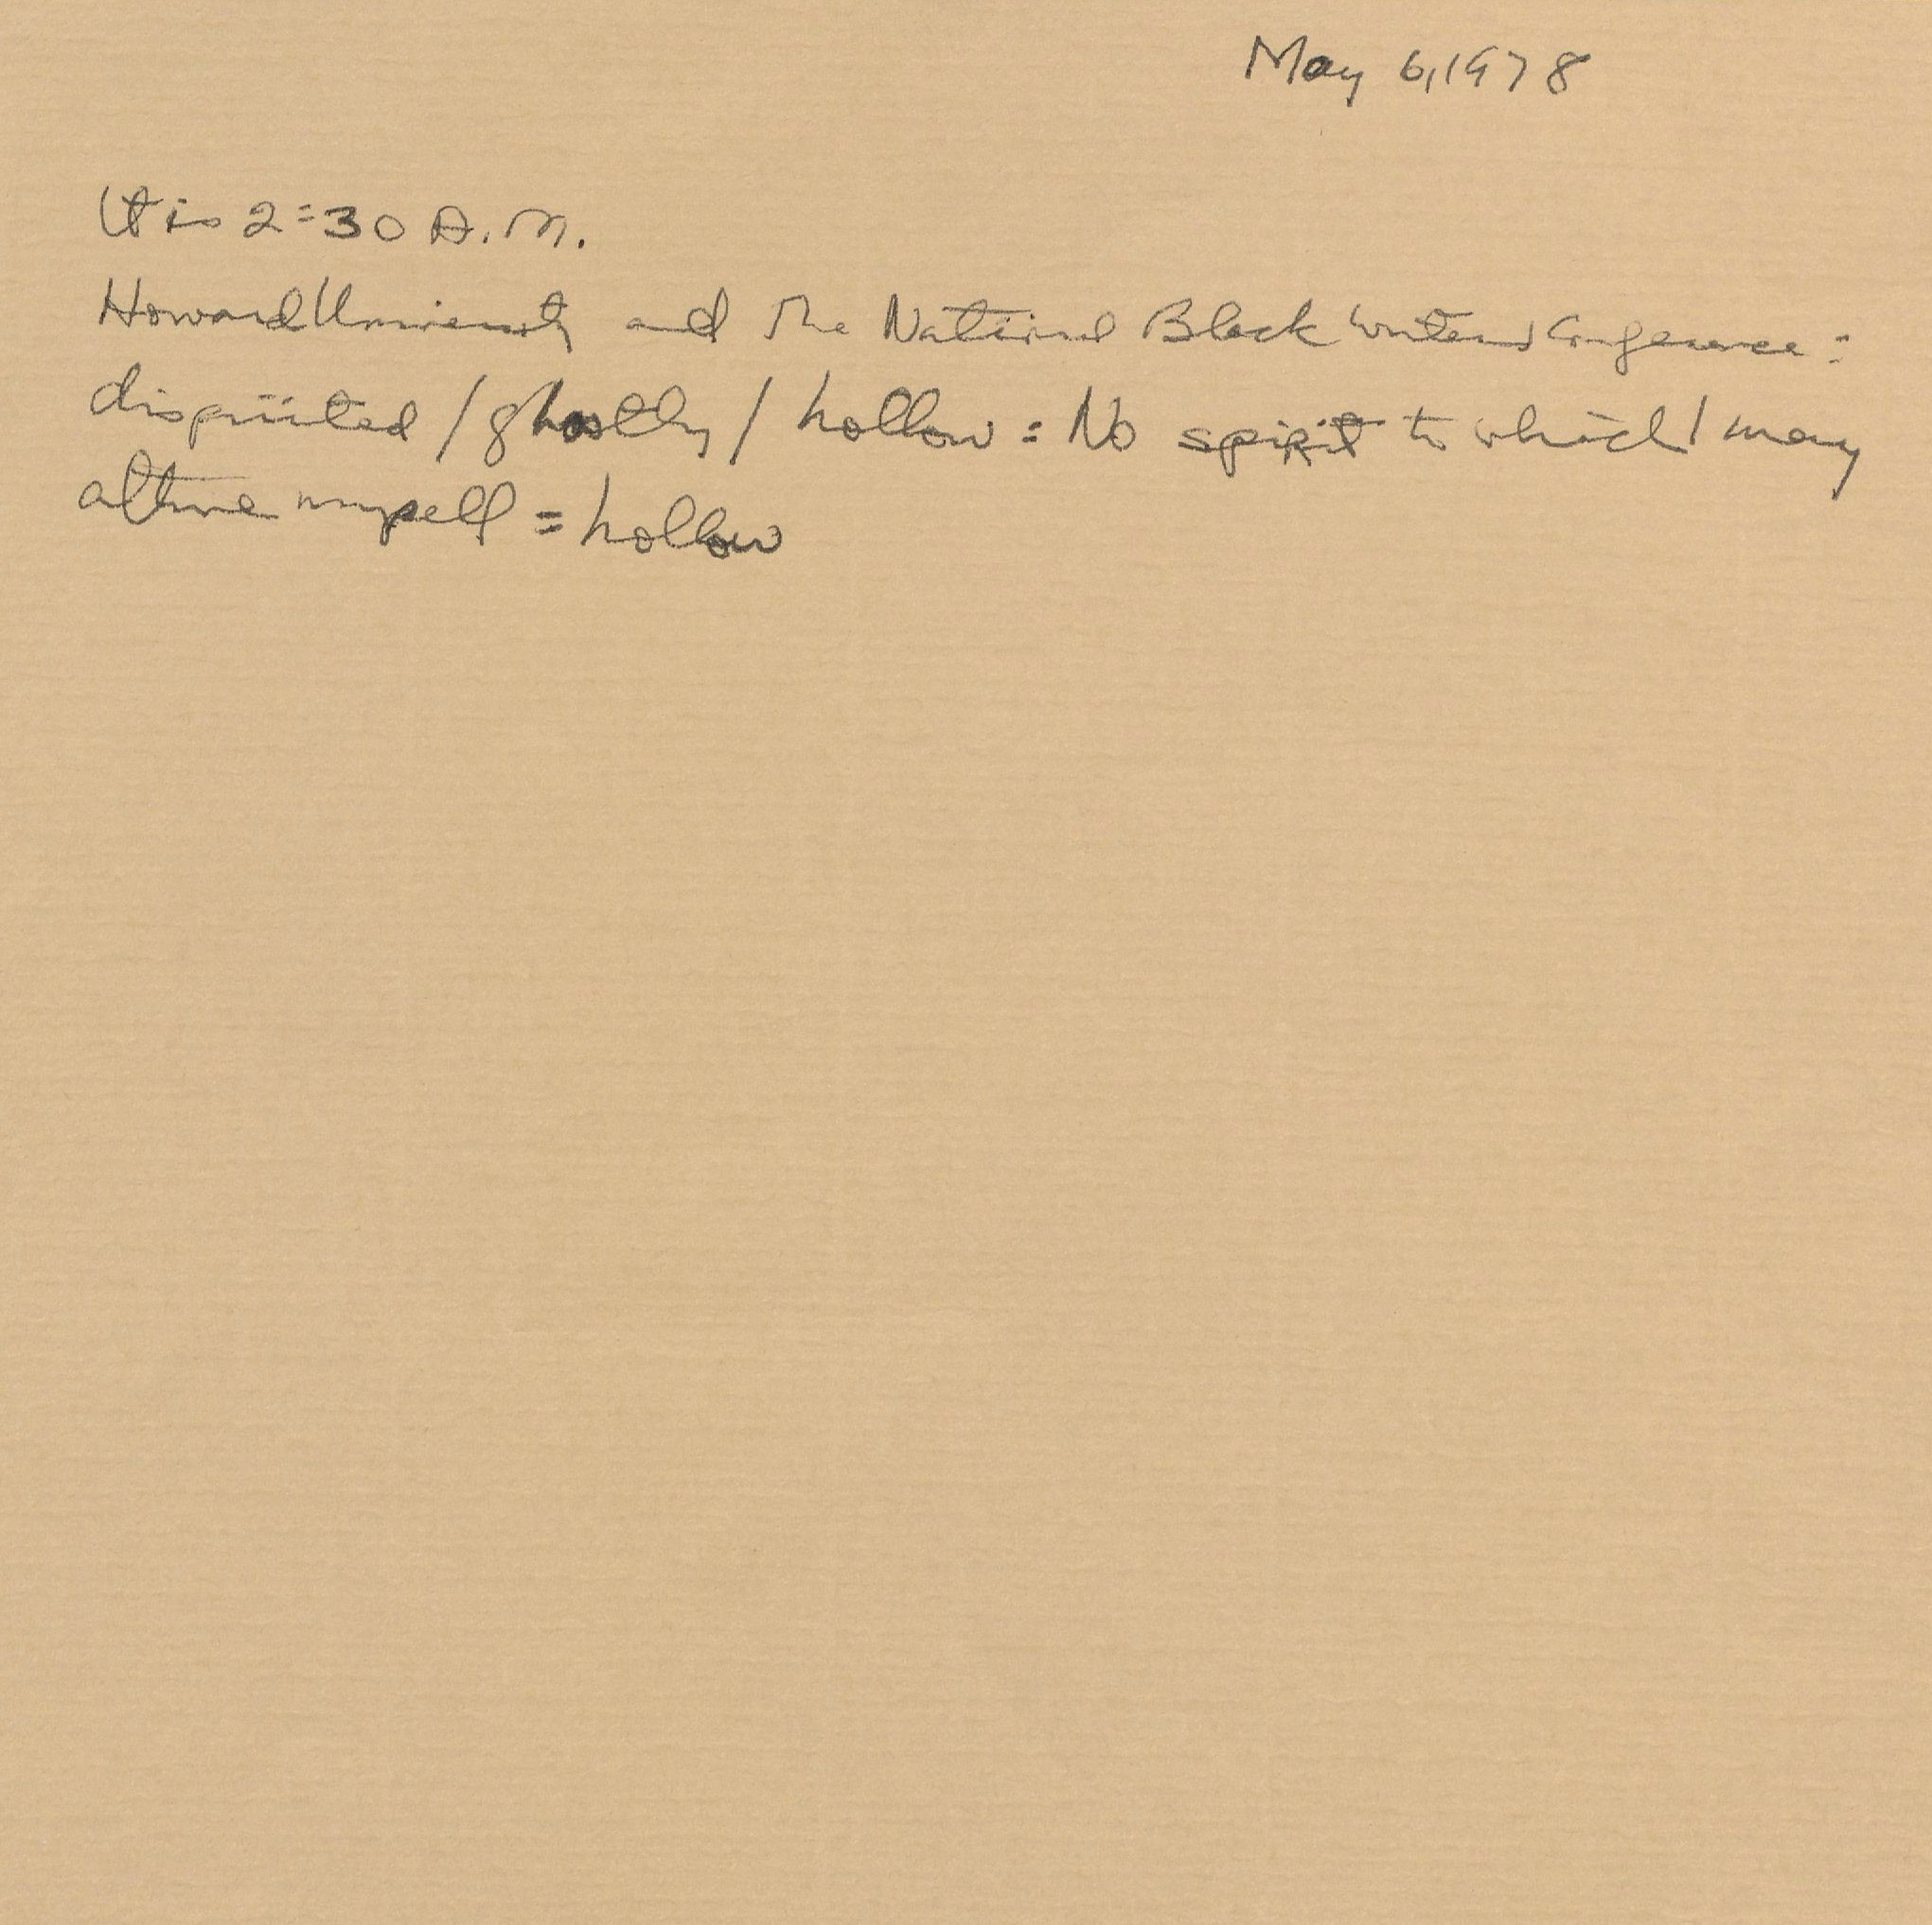 May 6, 1978
It is 2:30 A.M.
Howard University and The National Black Writers Conference:
dispirited / ghostly / hollow: No spirit to which I may
attune myself = hollow